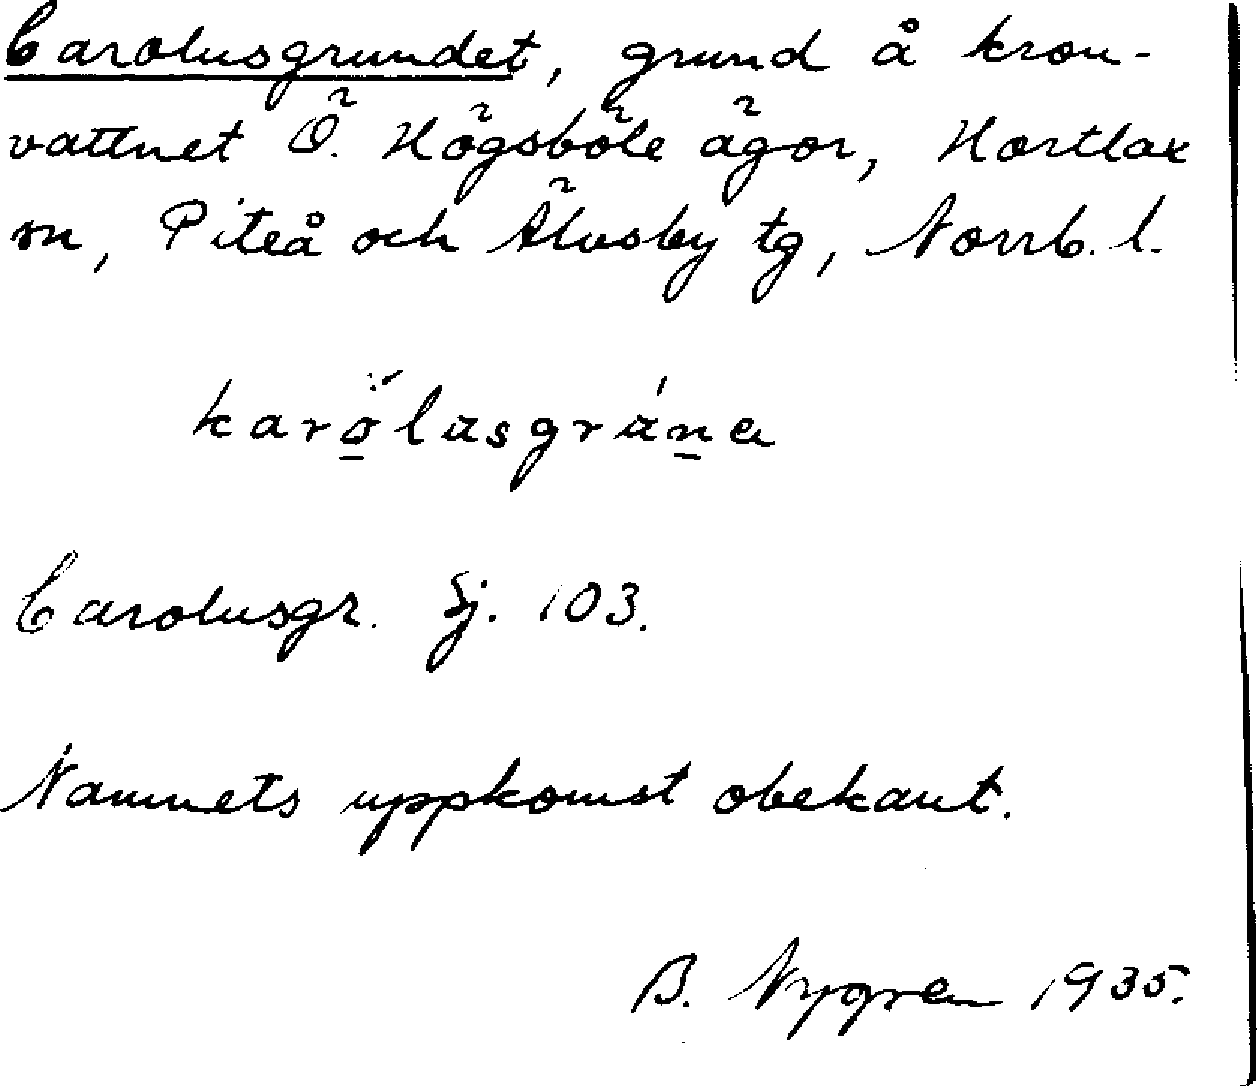 Carolusgrundet, grund å kron-
vattnet Ö. Högsböle ägor, Hortlax
sn, Piteå och Älvsby tg, Norrb. l.
karolusgruna
Carolusgr. Sj. 103.
Namnets uppkomst obekant.
B. Nygren 1935.